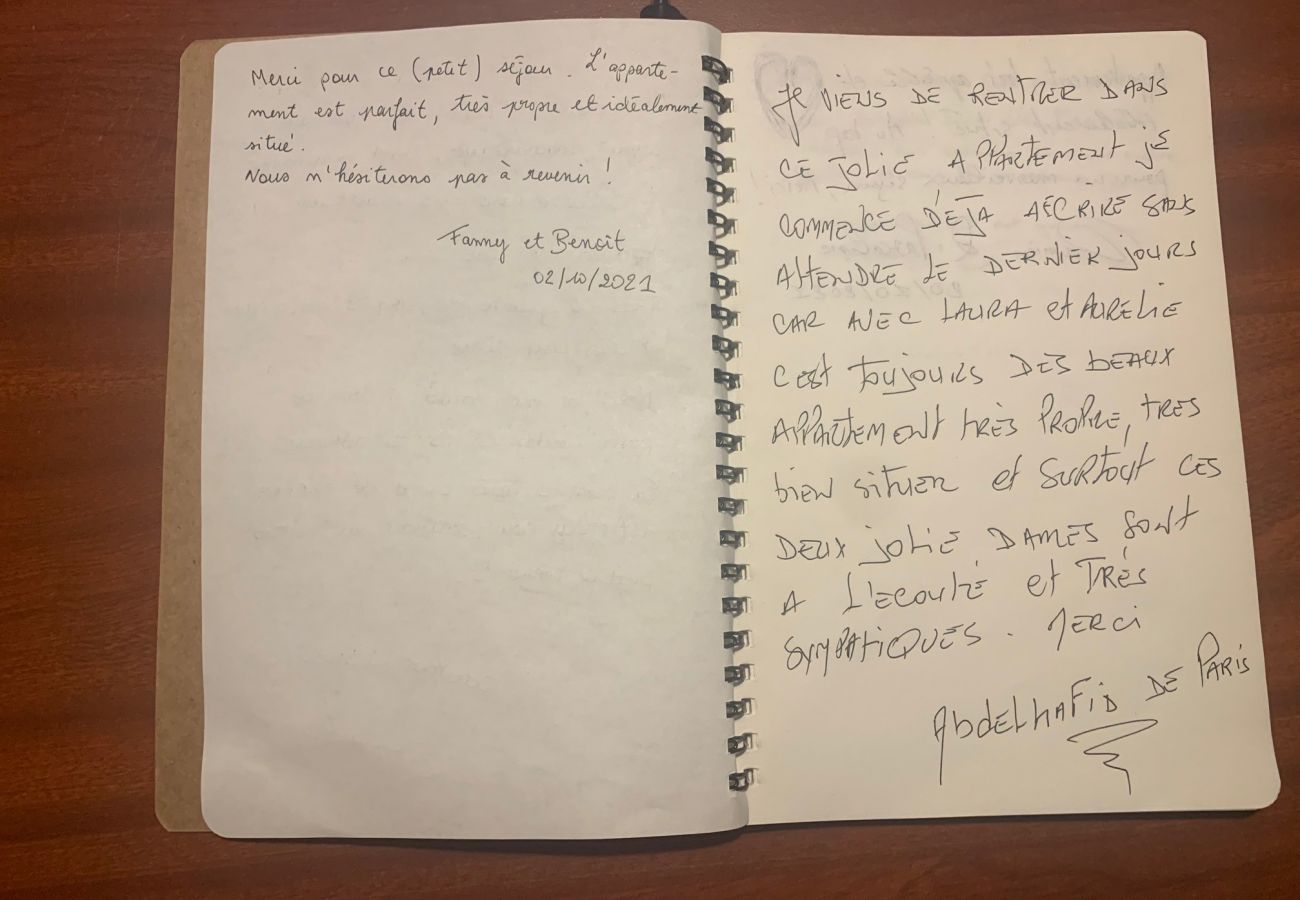 Merci pour ce (petit) séjour. L'apparte-
ment est parfait, très propre et idéalement
situé.
Nous n'hésiterons pas à revenir !
Fanny et Benoît
02/10/2021
Je VIENS DE RENTRER DANS
CE JOLIE APPARTEMENT JE
COMMENCE DÉJA AECRIRE SANS
ATTENDRE LE DERNIER JOURS
CAR AVEC LAURA et AURELIE
C'est toujours DES beaux
APPARTEMENT très PROPRE, TRES
bien situer et SURTOUT CES
DEUX jolie DAMES SONT
A L'ECOUTE et TRÈS
SYMPATIQUES. MERCI
AbdELHAFID DE PARIS